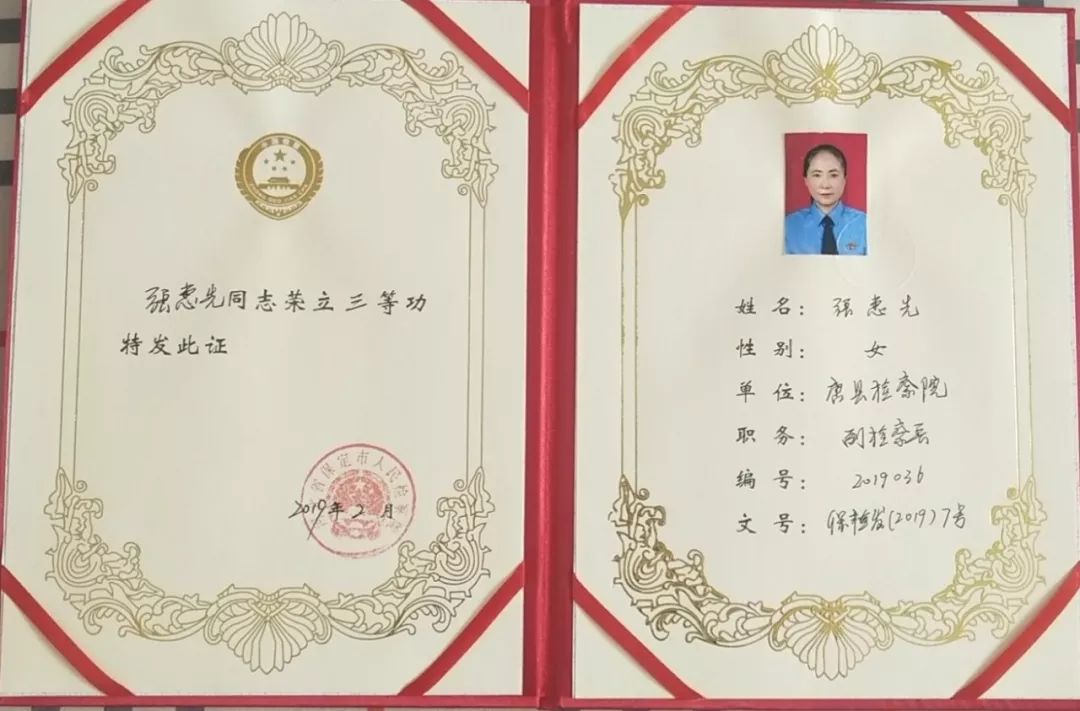 张惠先同志荣立三等功
特发此证
省保定市人民检
2019年2月
姓名：张惠先
性别：女
单位：唐县检察院
职务：副检察长
编号：2019036
文号：保检发（2019）7号